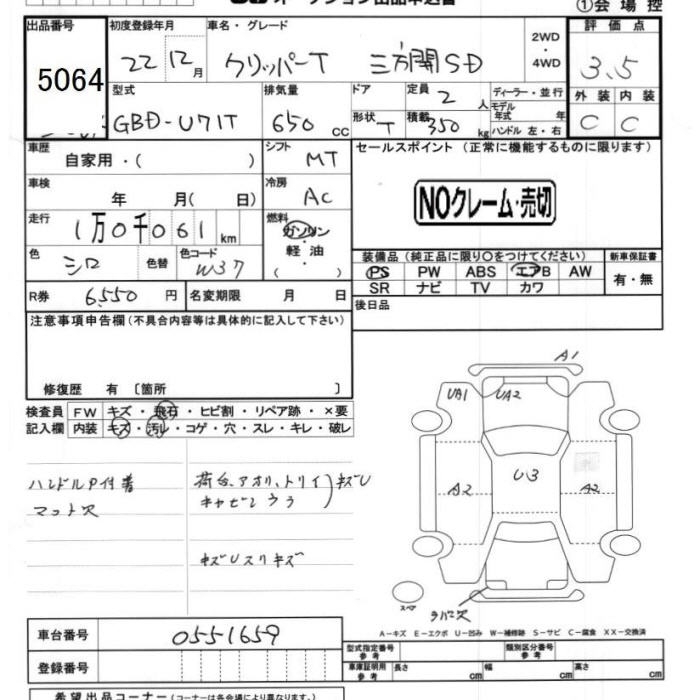 オークション出品申込書
①会場控
出品番号 初度登録年月 車名・グレード 評価点
5064 22 12月 クリッパーT 三方開SD 2WD・4WD 3.5
型式 排気量 ドア 定員 2人 ディーラー・並行 外装 内装
GBD-U71T 650cc 形状 T 積載 350kg モデル年式 年 ハンドル 左・右 C C
車歴 自家用・( ) シフト MT セールスポイント (正常に機能するものに限ります)
車検 年 月(日) 冷房 AC NOクレーム・売切
走行 1万0千061km 燃料 ガソリン・軽油・( )
色 シロ 色替 色コード W37 装備品(純正品に限り○をつけてください) 新車保証書
PS PW ABS エアB AW 有・無
SR ナビ TV カワ
R券 6,550円 名変期限 月 日 後日品
注意事項申告欄(不具合内容等は具体的に記入して下さい)
修復歴 有 〔箇所 〕
検査員記入欄 FW キズ・飛石・ヒビ割・リペア跡・×要
内装 キズ・汚レ・コゲ・穴・スレ・キレ・破レ
ハンドルP付着
マット欠
荷台、アオリ、トリイ キズU
キャビンウラ
キズUスリキズ
A1
UA1 UA2
A2 U3 A2
スペア
ラバー欠
A－キズ E－エクボ U－凹み W－補修跡 S－サビ C－腐食 XX－交換済
車台番号 0551659
登録番号
型式指定番号 参考 類別区分番号 参考
車庫証明用 参考 長さ cm 幅 cm 高さ cm
希望出品コーナー(コーナーは各会場により異なります。)